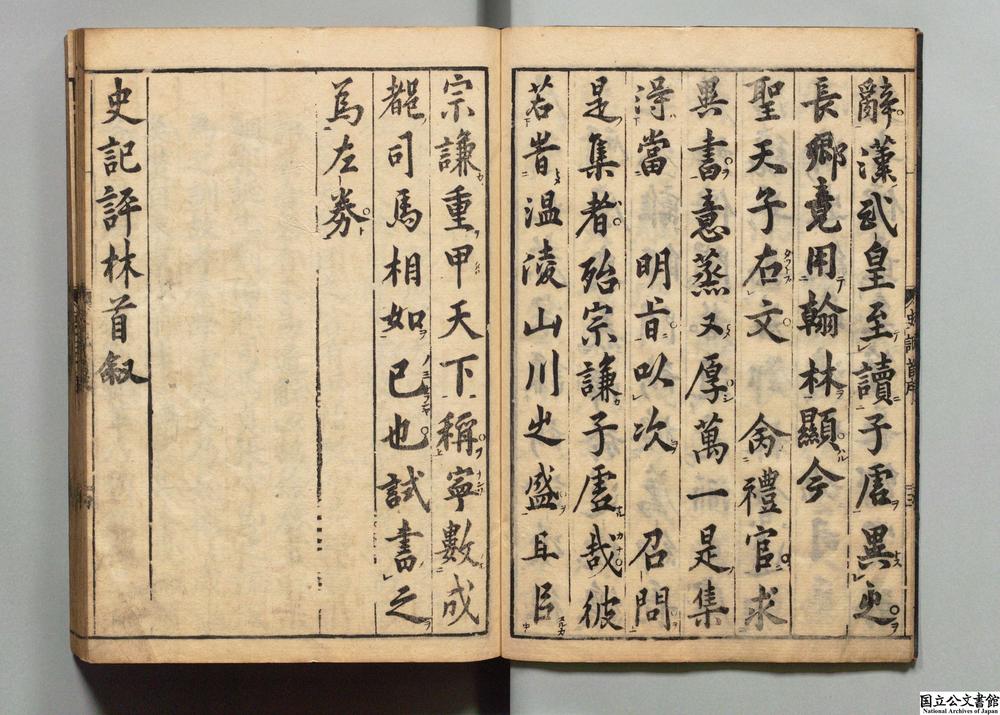 辭漢武皇至讀子虛異之
長卿竟用翰林顯今
聖天子右文 命禮官求
異書意蒸又厚萬一是集
得當 明旨以次 召問
是集者殆宗謙子虛哉彼
若昔温陵山川之盛且臣
宗謙重甲天下稱寧數成
都司馬相如已也試書之
爲左券
史記評林首叙
国立公文書館
National Archives of Japan